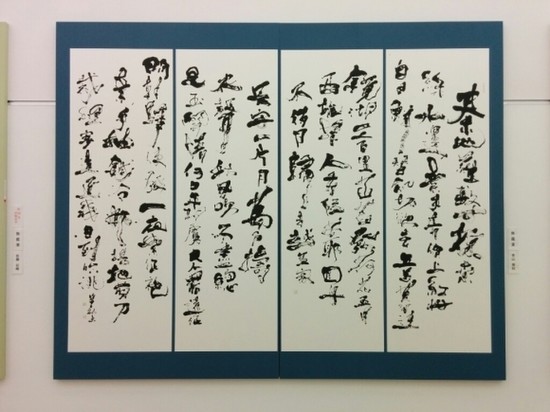 秦地羅敷女採桑
綠水邊素手青條上紅妝
白日鮮蠶飢妾欲去五馬莫留連
鏡湖三百里菡萏發荷花五月
西施採人看隘若耶回舟
不待月歸去越王家
長安一片月萬戶擣
衣聲秋風吹不盡總
是玉關情何日平胡虜良人罷遠征
明朝驛使發一夜絮征袍
素手抽鍼冷那堪把剪刀
裁縫寄遠道幾日到臨洮